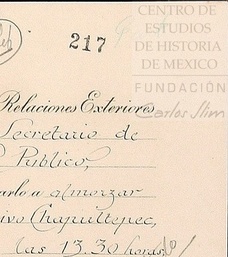 CENTRO DE
ESTUDIOS
DE HISTORIA
DE MEXICO
FUNDACIÓN
Carlos Slim
217
Relaciones Exteriores
Secretario de
Publico,
arlo a almorzar
ivo Chapultepec,
las 13.30 horas,